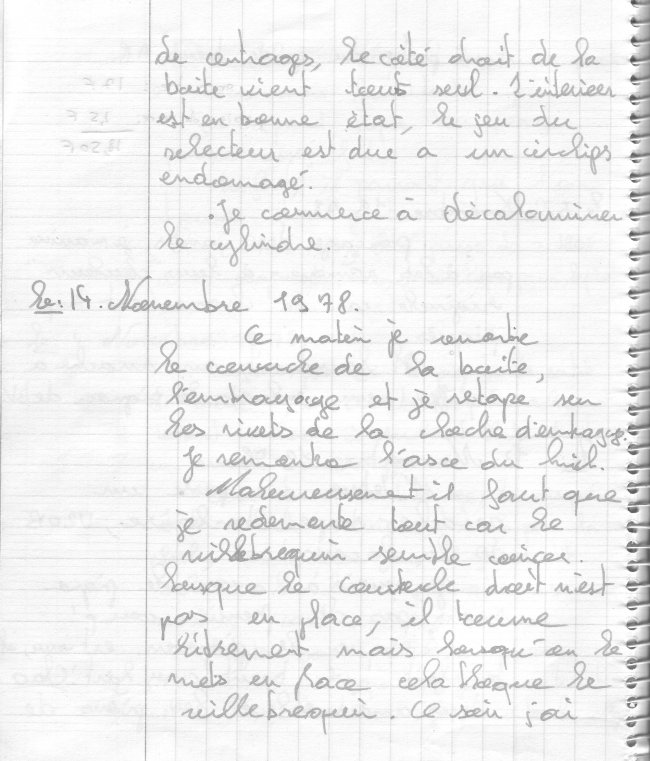 de centrages, le côté droit de la
boite vient tout seul. L'interieur
est en bonne état, le jeu du
selecteur est due a un circlips
endomagé.
. Je commence à décalaminer
le cylindre.
le: 14. Novembre 1978.
Ce matin je remonte
le couvercle de la boite,
l'embrayage et je retape sur
les rivets de la cloche d'embrayage.
Je remonte l'axe du kick.
Maleureusement il faut que
je redemonte tout car le
villebrequin semble coincer.
Lorsque le couvercle droit n'est
pas en place, il tourne
librement mais lorsqu'on le
mets en place cela bloque le
villebrequin. Ce soir j'ai